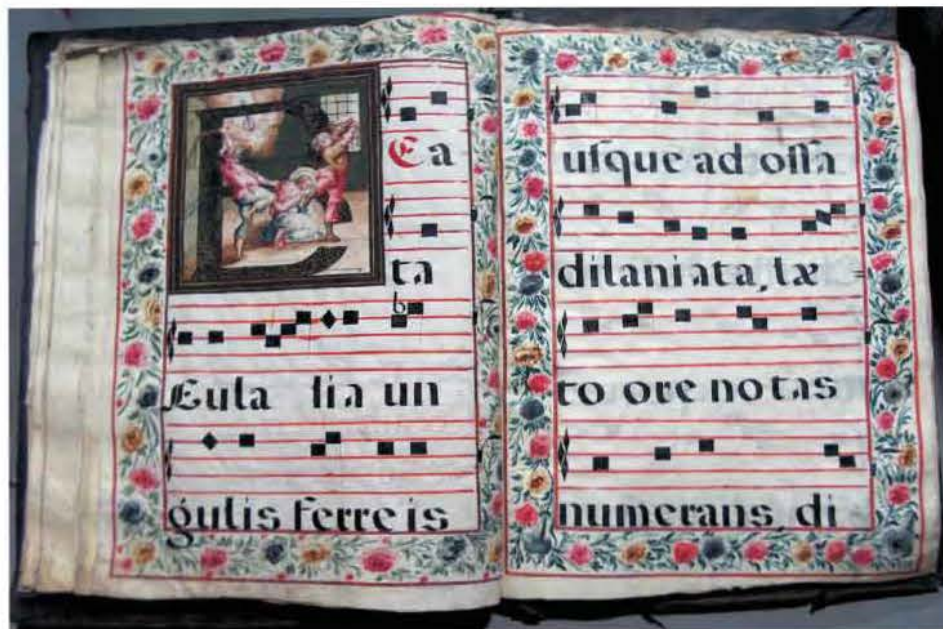 BEa
ta
Eula lia un
gulis ferreis
uſque ad oſſa
dilaniata, læ=
to ore notas
numerans, di